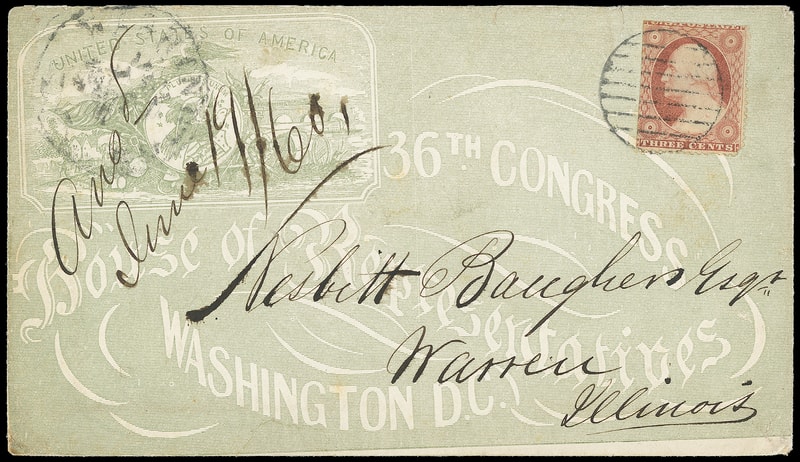 UNITED STATES OF AMERICA
Ans
June 19/60.
36TH CONGRESS
House of Representatives
WASHINGTON D.C.
THREE CENTS
Nesbitt Baugher Esqr
Warren
Illinois